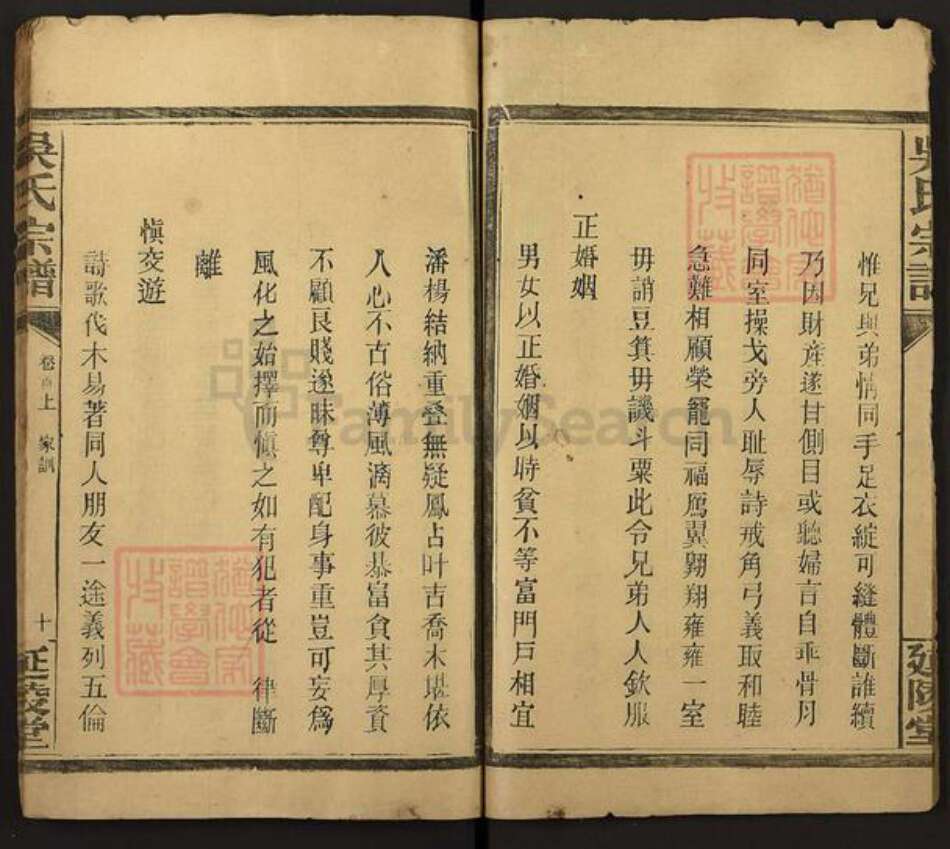 吳氏宗譜
延陵堂
惟兄與弟情同手足衣綻可縫體斷誰續
乃因財產遂甘側目或聽婦言自乖骨肉
同室操戈旁人恥辱詩戒角弓義取和睦
急難相顧榮寵同福鴈翼翱翔雍雍一室
毋誚豆箕毋譏斗粟此令兄弟人人欽服
正婚姻
男女以正婚姻以時貧不等富門戶相宜
潘楊結納重叠無疑鳳占叶吉喬木堪依
人心不古俗薄風漓慕彼恭富貪其厚資
不顧良賤遂昧尊卑配身事重豈可妄為
風化之始擇而慎之如有犯者從 律斷
離
慎交遊
詩歌伐木易著同人朋友一途義列五倫
吳氏宗譜
上 家訓
十
延陵堂
譜學會
收藏
譜學會
收藏
FamilySearch